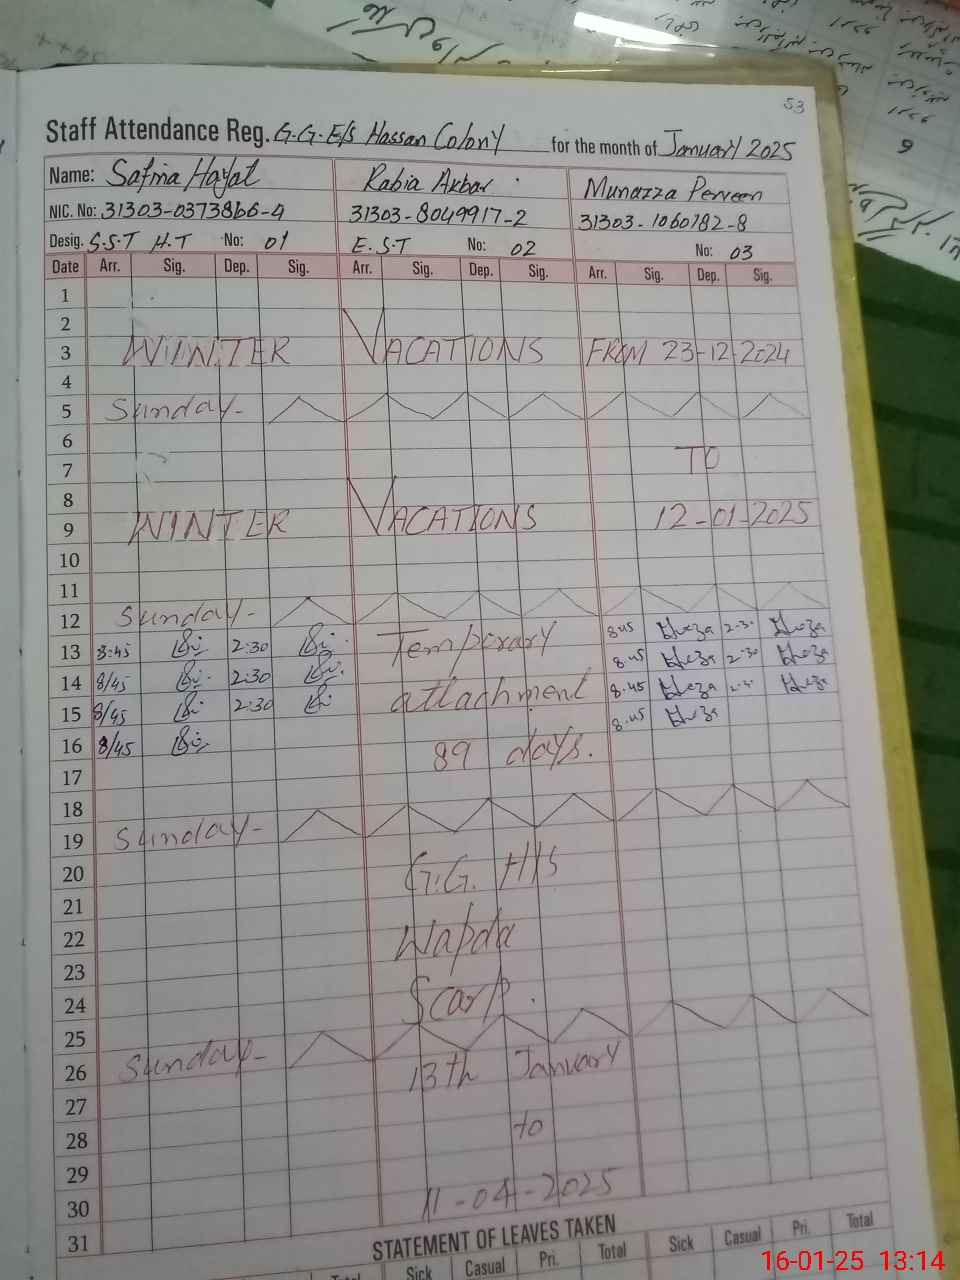 53
Staff Attendance Reg. G.G.E/S Hassan Colony for the month of January 2025
Name: Safina Hayat Rabia Akbar Munazza Perveen
NIC. No: 31303-0373866-4 31303-8049917-2 31303-1060782-8
Desig. S.S.T H.T No: 01 E.S.T No: 02 No: 03
Date Arr. Sig. Dep. Sig. Arr. Sig. Dep. Sig. Arr. Sig. Dep. Sig.
1
2
3 WINTER VACATIONS FROM 23-12-2024
4
5 Sunday-
6
7 TO
8
9 WINTER VACATIONS 12-01-2025
10
11
12 Sunday-
13 8:45 2:30 Temporary 8:45 2-30
14 8/45 2:30 8.45 2-30
15 8/45 2:30 attachment 8.45
16 8/45 8.45
17 89 days.
18
19 Sunday-
20 G.G. H/S
21
22 Wapda
23
24 Scarp.
25
26 Sunday- 13th January
27
28 to
29
30 11-04-2025
31
STATEMENT OF LEAVES TAKEN
Total Sick Casual Pri. Total Sick Casual Pri. Total
16-01-25 13:14